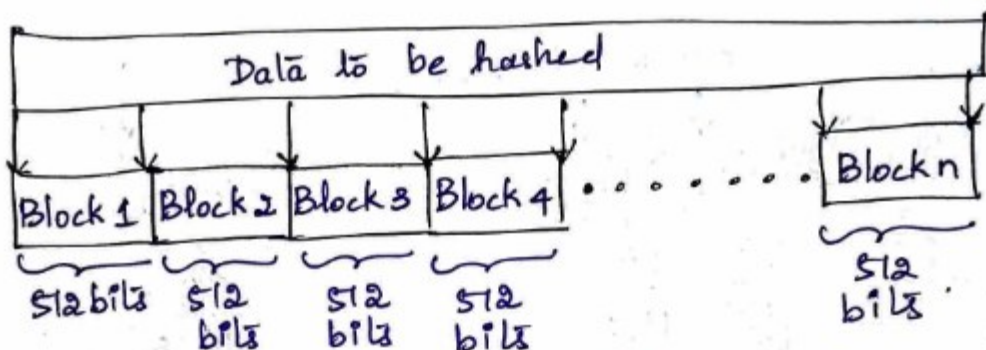 Data to be hashed
Block 1 Block 2 Block 3 Block 4 ........ Block n
512 bits 512 bits 512 bits 512 bits 512 bits.